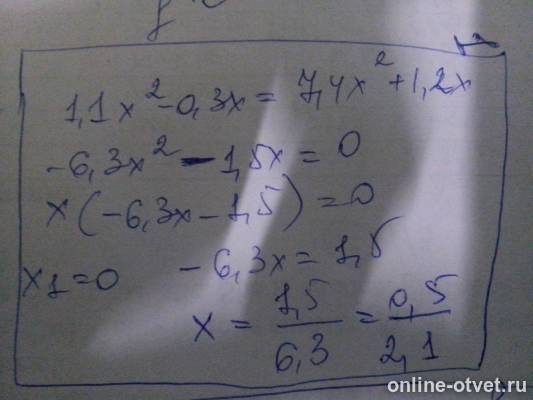 1,1x² - 0,3x = 7,4x² + 1,2x
-6,3x² - 1,5x = 0
x(-6,3x - 1,5) = 0
x₁ = 0 -6,3x = 1,5
x = 1,5/6,3 = 0,5/2,1
online-otvet.ru